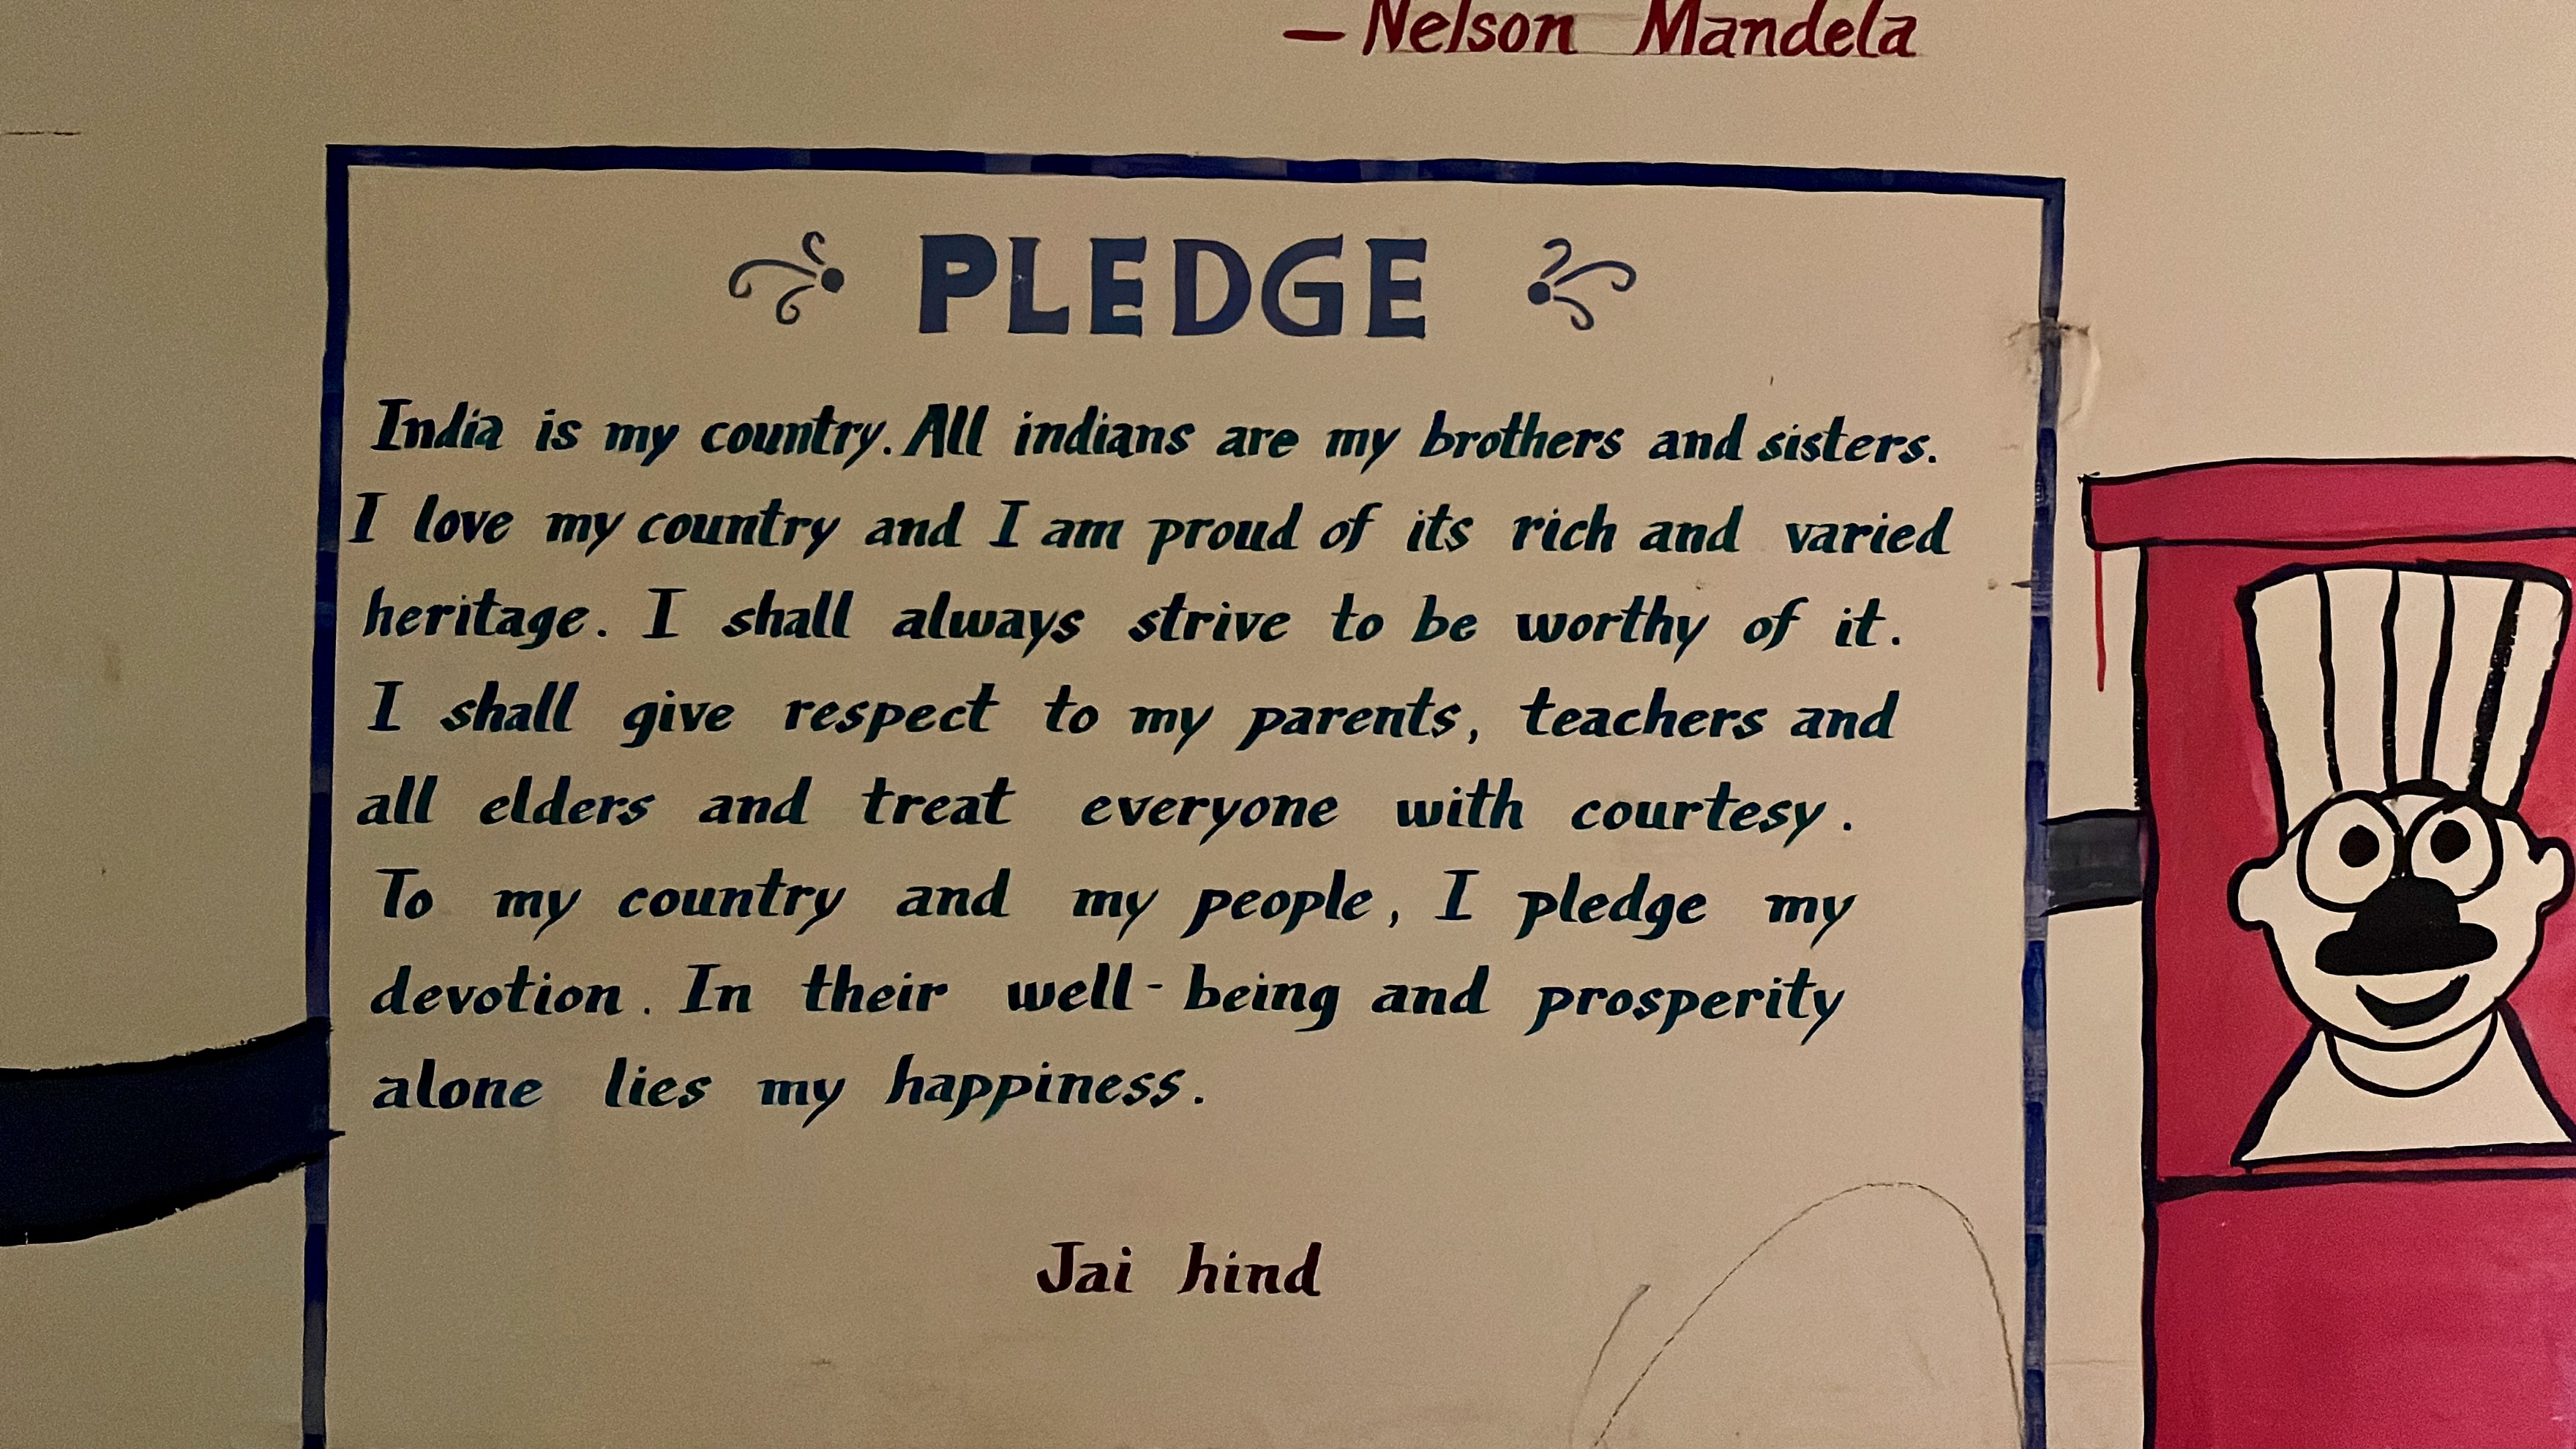 — Nelson Mandela
PLEDGE
India is my country. All indians are my brothers and sisters.
I love my country and I am proud of its rich and varied
heritage. I shall always strive to be worthy of it.
I shall give respect to my parents, teachers and
all elders and treat everyone with courtesy.
To my country and my people, I pledge my
devotion. In their well-being and prosperity
alone lies my happiness.
Jai hind